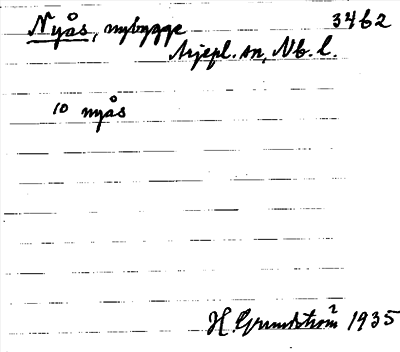 Nyås, nybygge 3462
Arjepl. sn, Nb. l.
10 nyås
H. Grundström 1935